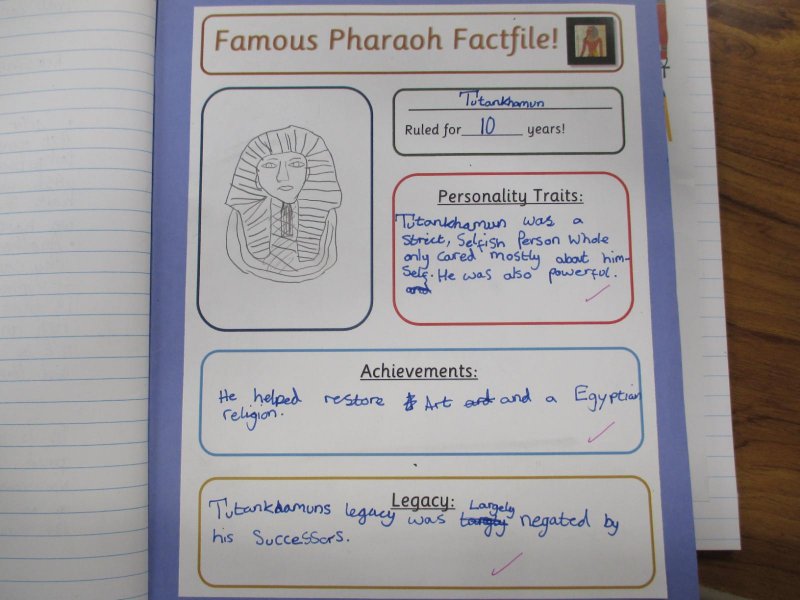 Famous Pharaoh Factfile!
Tutankhamun
Ruled for 10 years!
Personality Traits:
Tutankhamun was a
strict, Selfish Person Whole
only cared mostly about him-
Self. He was also powerful.
and
Achievements:
He helped restore Art and and a Egyptian
religion.
Legacy:
Tutankhamuns legacy was Largely negated by
his Successors.